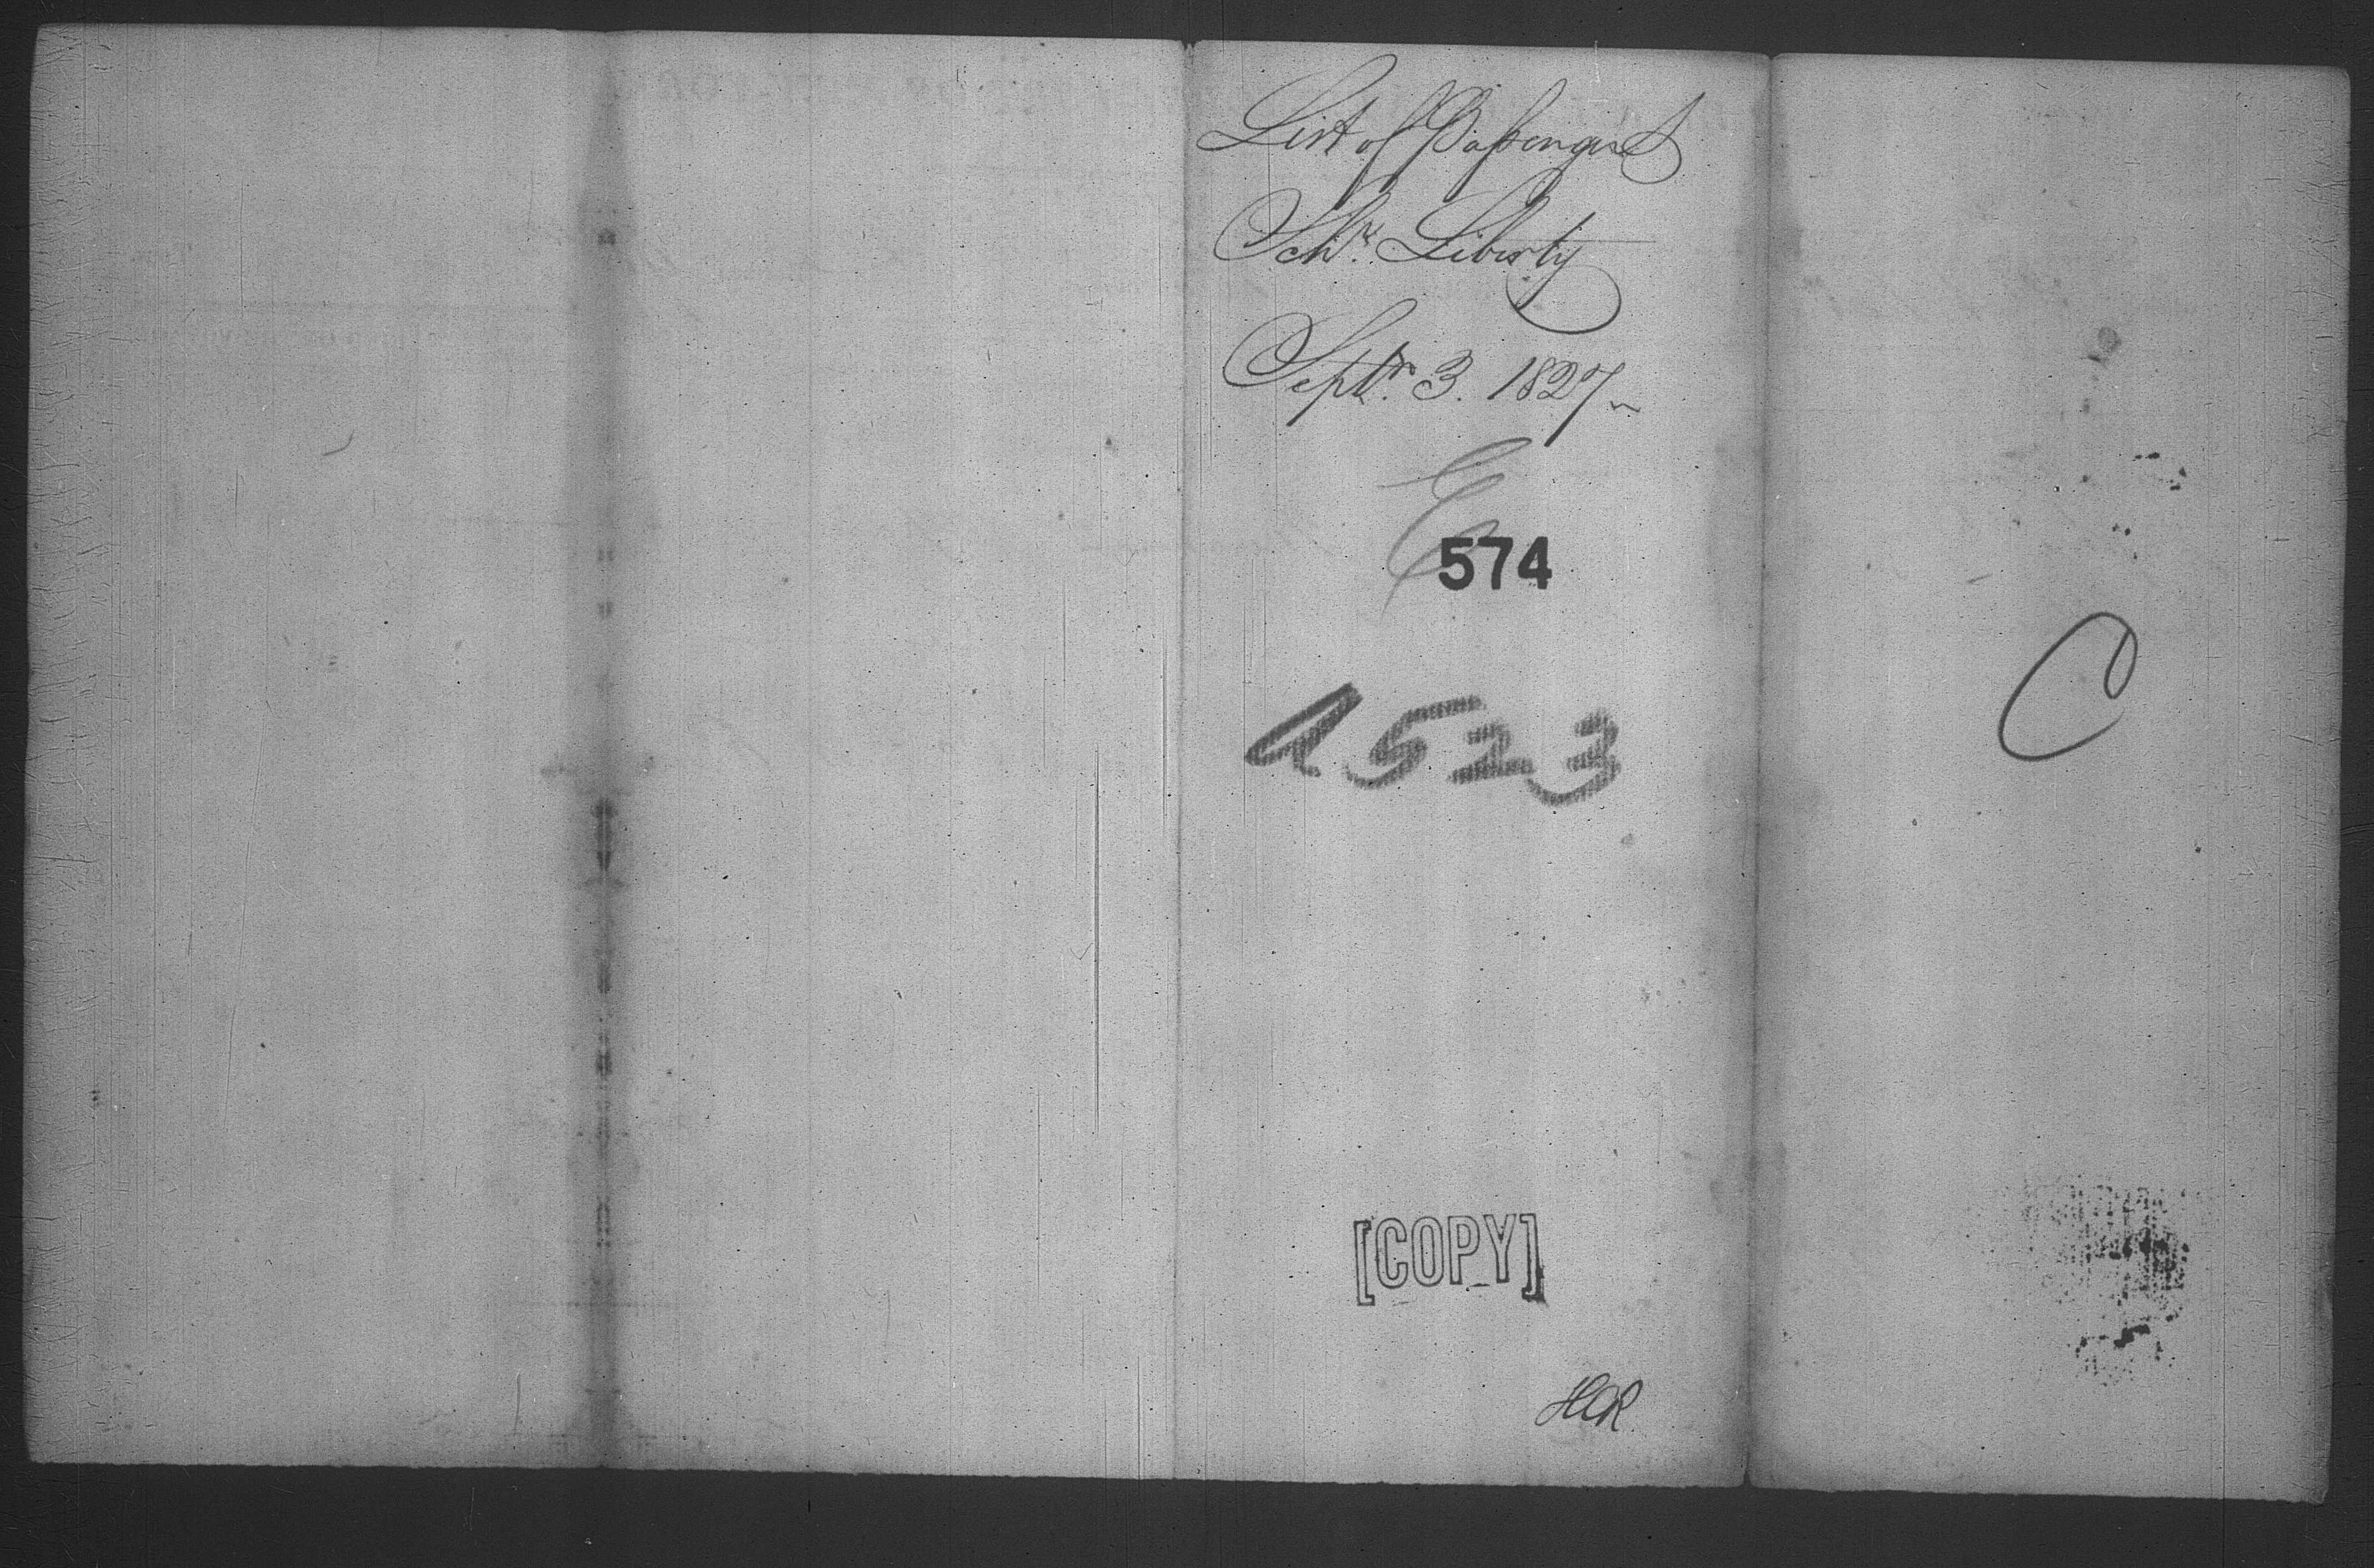 List of Passengers
Schr. Liberty
Septr. 3. 1827
E
574
a 523
[COPY]
HCR
C